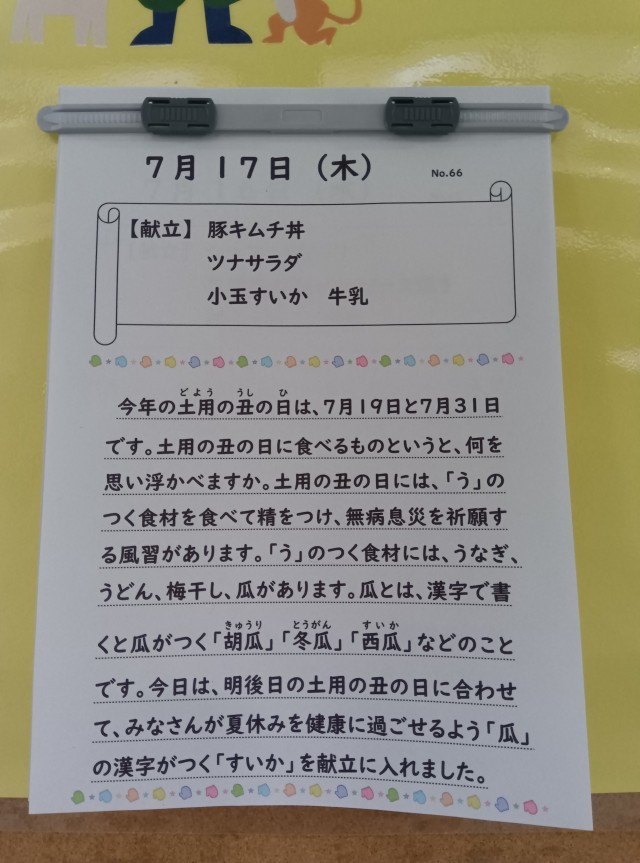 7月17日（木）
No.66
【献立】 豚キムチ丼
ツナサラダ
小玉すいか 牛乳
どよう うし ひ
今年の土用の丑の日は、7月19日と7月31日
です。土用の丑の日に食べるものというと、何を
思い浮かべますか。土用の丑の日には、「う」の
つく食材を食べて精をつけ、無病息災を祈願す
る風習があります。「う」のつく食材には、うなぎ、
うどん、梅干し、瓜があります。瓜とは、漢字で書
きゅうり とうがん すいか
くと瓜がつく「胡瓜」「冬瓜」「西瓜」などのこと
です。今日は、明後日の土用の丑の日に合わせ
て、みなさんが夏休みを健康に過ごせるよう「瓜」
の漢字がつく「すいか」を献立に入れました。